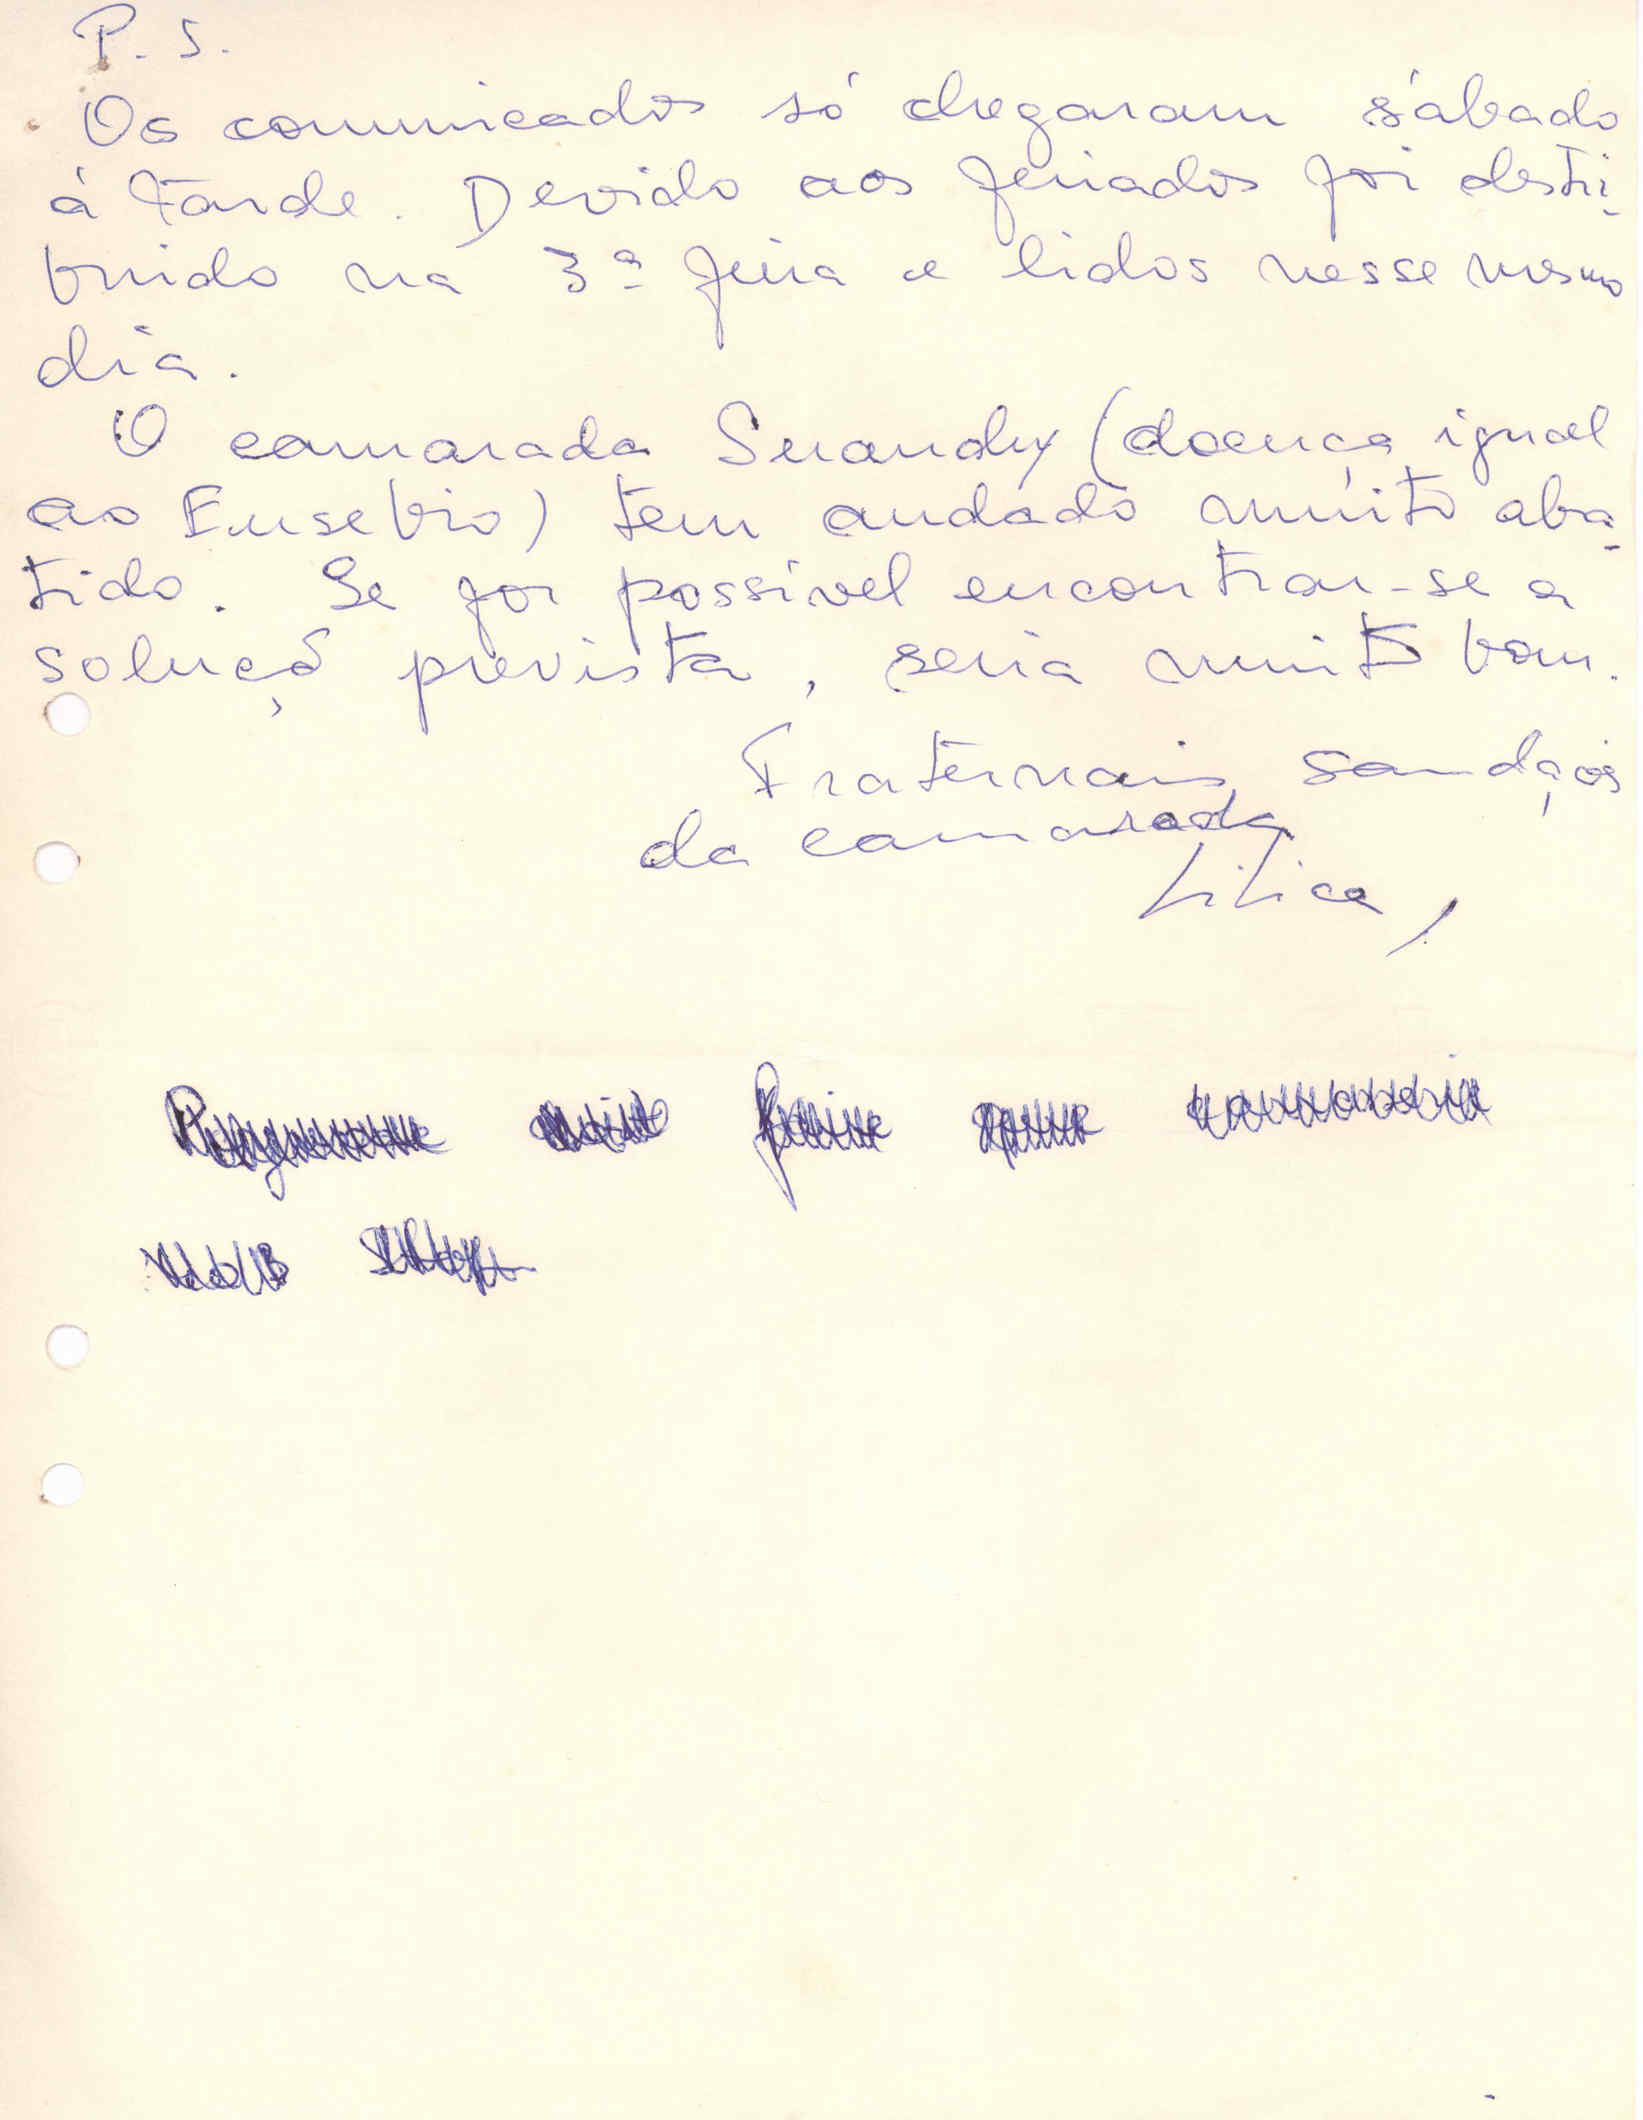 P. S.
Os comunicados só chegaram sábado
à tarde. Devido aos feriados foi destri-
buido na 3ª feira e lidos nesse mesmo
dia.
O camarada (doença igual
ao Eusebio) tem andado muito aba-
tido. Se for possivel encontrar-se a
soluçõ prevista, seria muito bom.
Fraternais saudações
da camarada
Lilica,